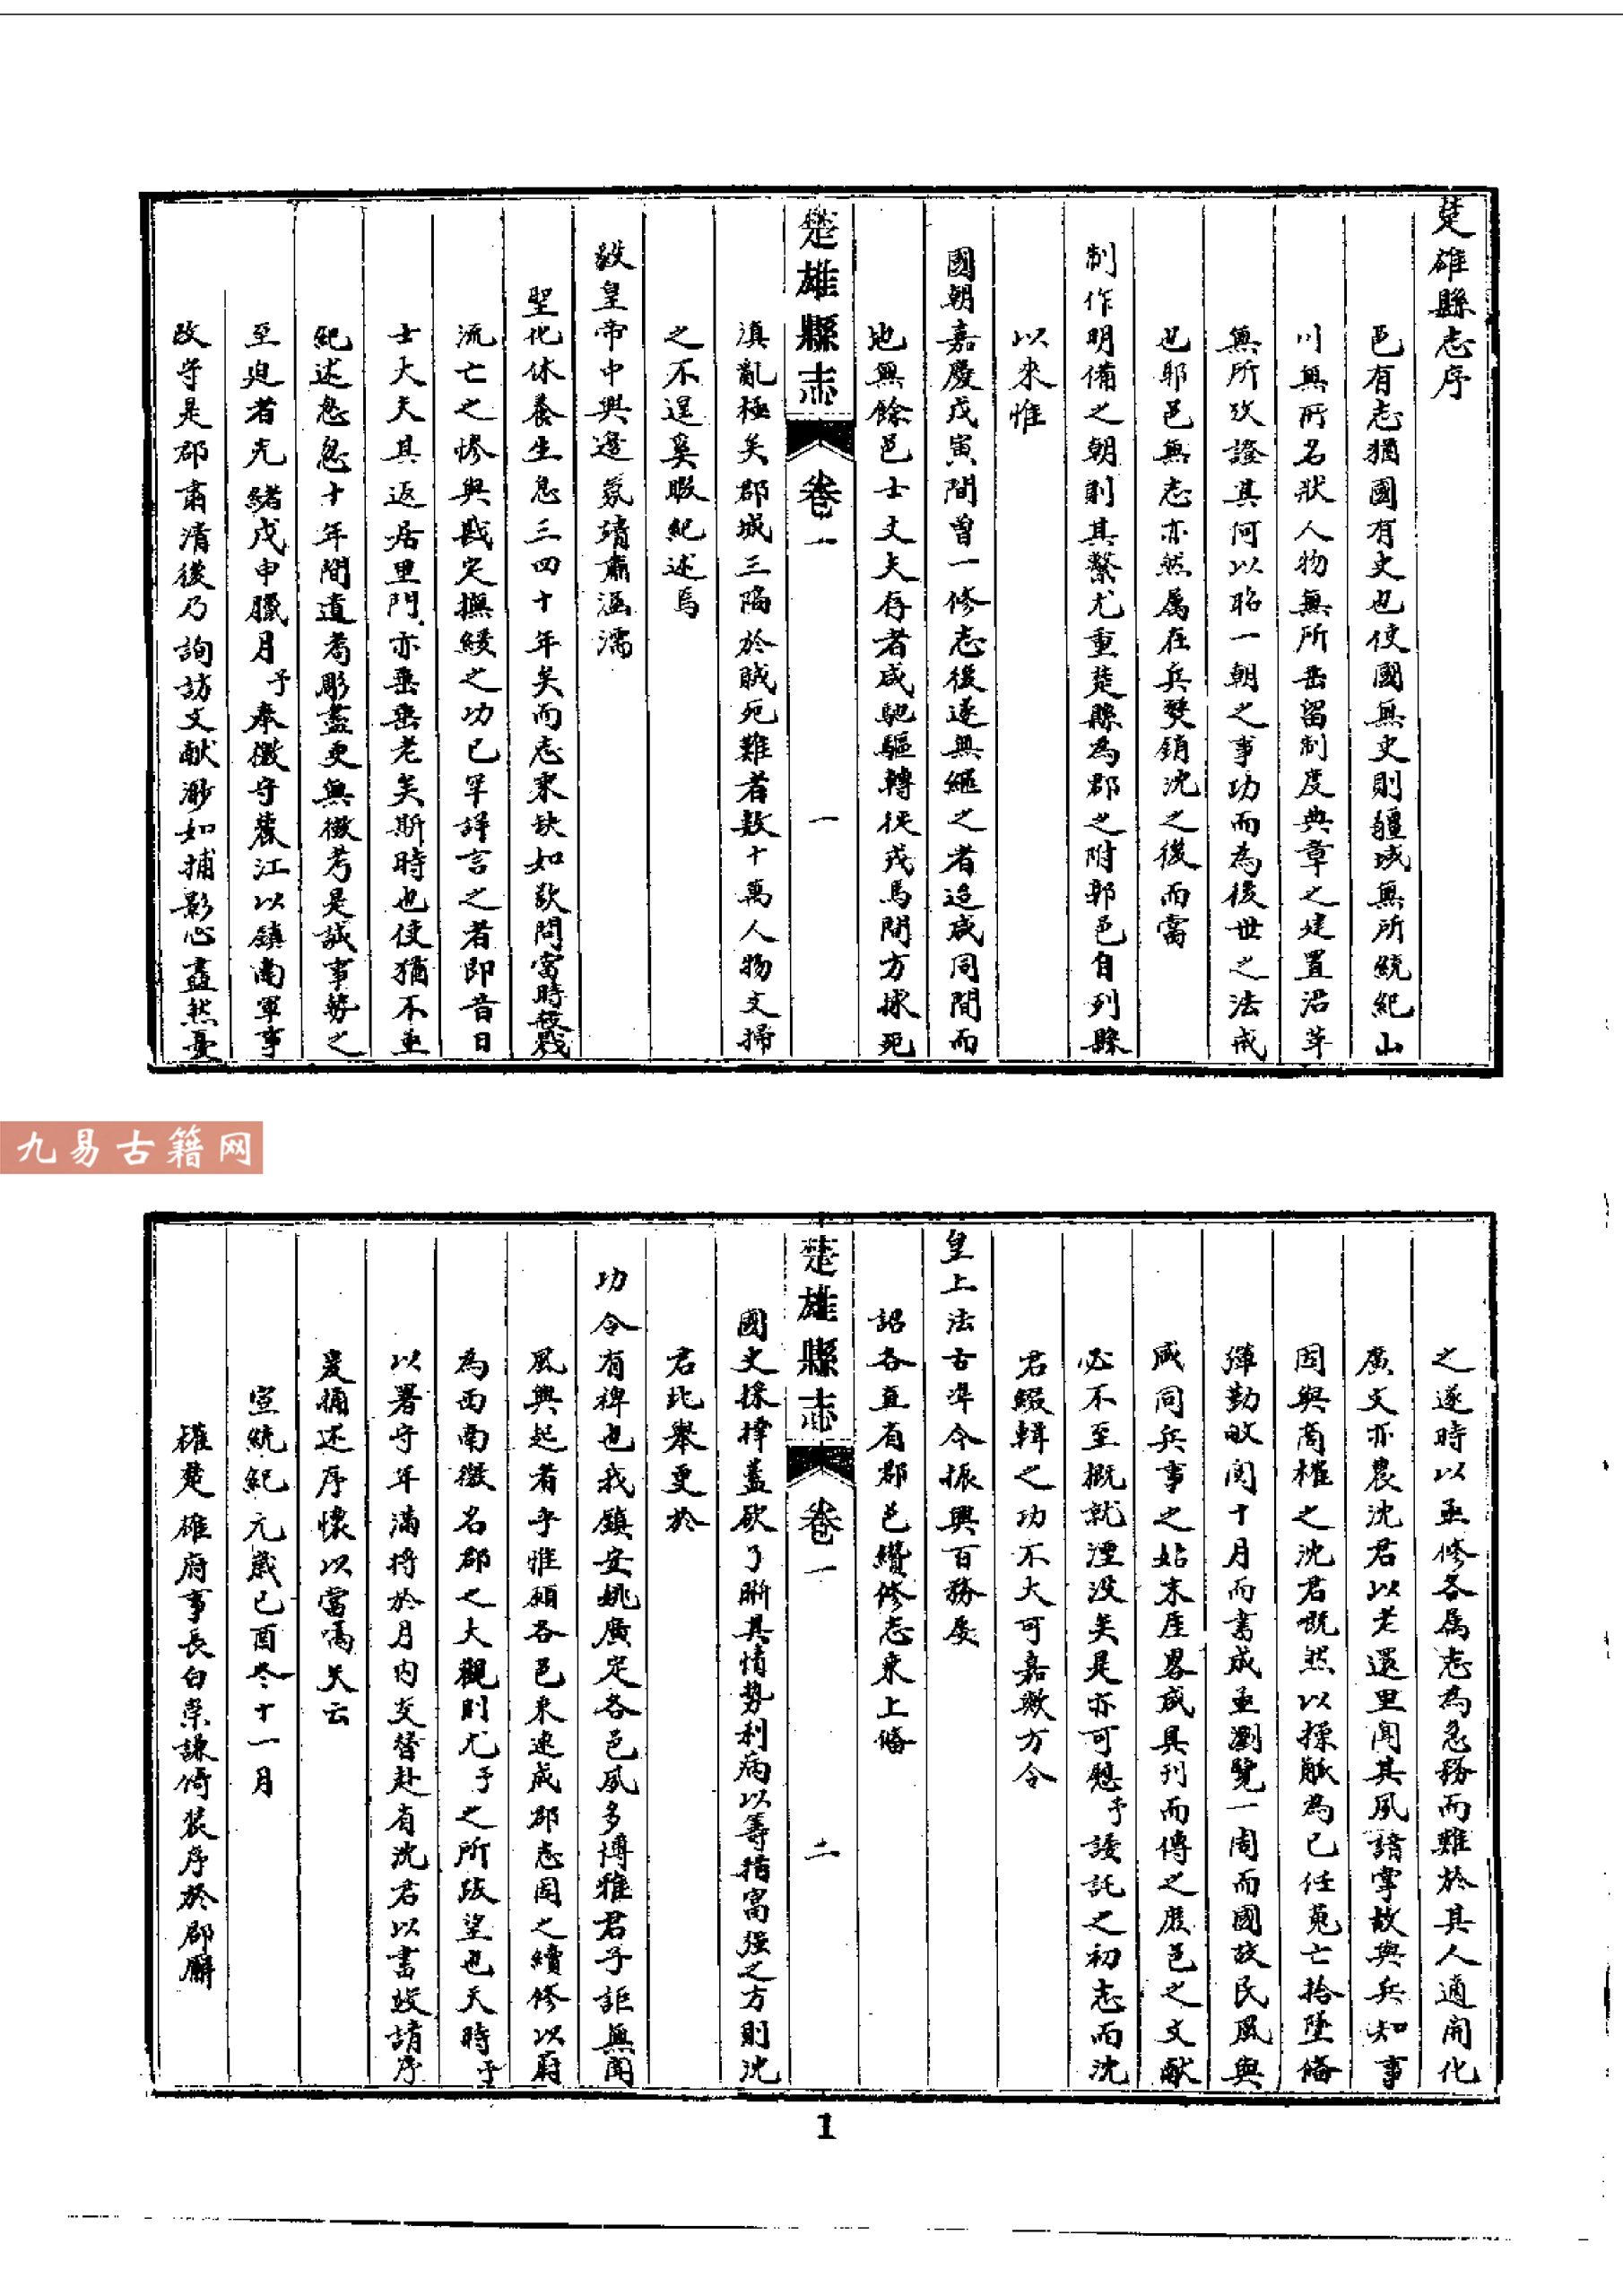 楚雄縣志序
邑有志猶國有史也使國無史則疆域無所統紀山
川無所名狀人物無所垂留制度典章之建置沿革
無所攷證其何以昭一朝之事功而為後世之法戒
也耶邑無志亦然属在兵燹銷沈之後而當
制作明備之朝則其繫尤重楚縣為郡之附郭邑自列縣
以來惟
國朝嘉慶戊寅間曾一修志後遂無繼之者迨咸同間而
地無餘邑士丈夫存者咸馳驅轉徙戎馬間方捄死
楚雄縣志 卷一 一
滇亂極矣郡城三陷於賊死難者数十萬人物文掃
之不遑奚暇紀述焉
毅皇帝中興邊氛靖肅涵濡
聖化休養生息三四十年矣而志乗缺如欲問當時殺戮
流亡之慘與戡定撫綏之功已罕詳言之者即昔日
士大夫其返居里門亦垂垂老矣斯時也使猶不亟
紀述忽忽十年間遺耇彫盡更無徵考是誠事勢之
至迫者光緒戊申臘月予奉檄守麓江以鎮南軍事
改守是郡肅清後乃詢訪文献渺如捕影心盡然憂
之遂時以亟修各属志為急務而難於其人適開化
廣文亦農沈君以老還里聞其夙諳掌故與兵知事
因與商榷之沈君慨然以操觚為己任蒐亡拾墜脩
殫勤敏閱十月而書成亟瀏覽一周而國故民風與
咸同兵事之始末厓畧咸具刊而傳之庶邑之文献
必不至概就湮没矣是亦可慰予諉託之初志而沈
君綴輯之功不大可嘉歟方今
皇上法古準今振興百務屡
詔各直省郡邑纘修志乗上備
楚雄縣志 卷一 二
國史採擇蓋欲了晰其情勢利病以籌措富强之方則沈
君此舉更於
功令有裨也我鎮安姚廣定各邑夙多博雅君子詎無聞
風興起者乎惟願各邑乗速成郡志因之續修以蔚
為西南徼名郡之大觀則尤予之所跂望也夫時予
以署守年滿将於月内交替赴省沈君以書竣請序
爰摘述序懐以當嚆矢云
宣統紀元歲己酉冬十一月
権楚雄府事長白崇謙倚装序於郡廨
九易古籍网
1